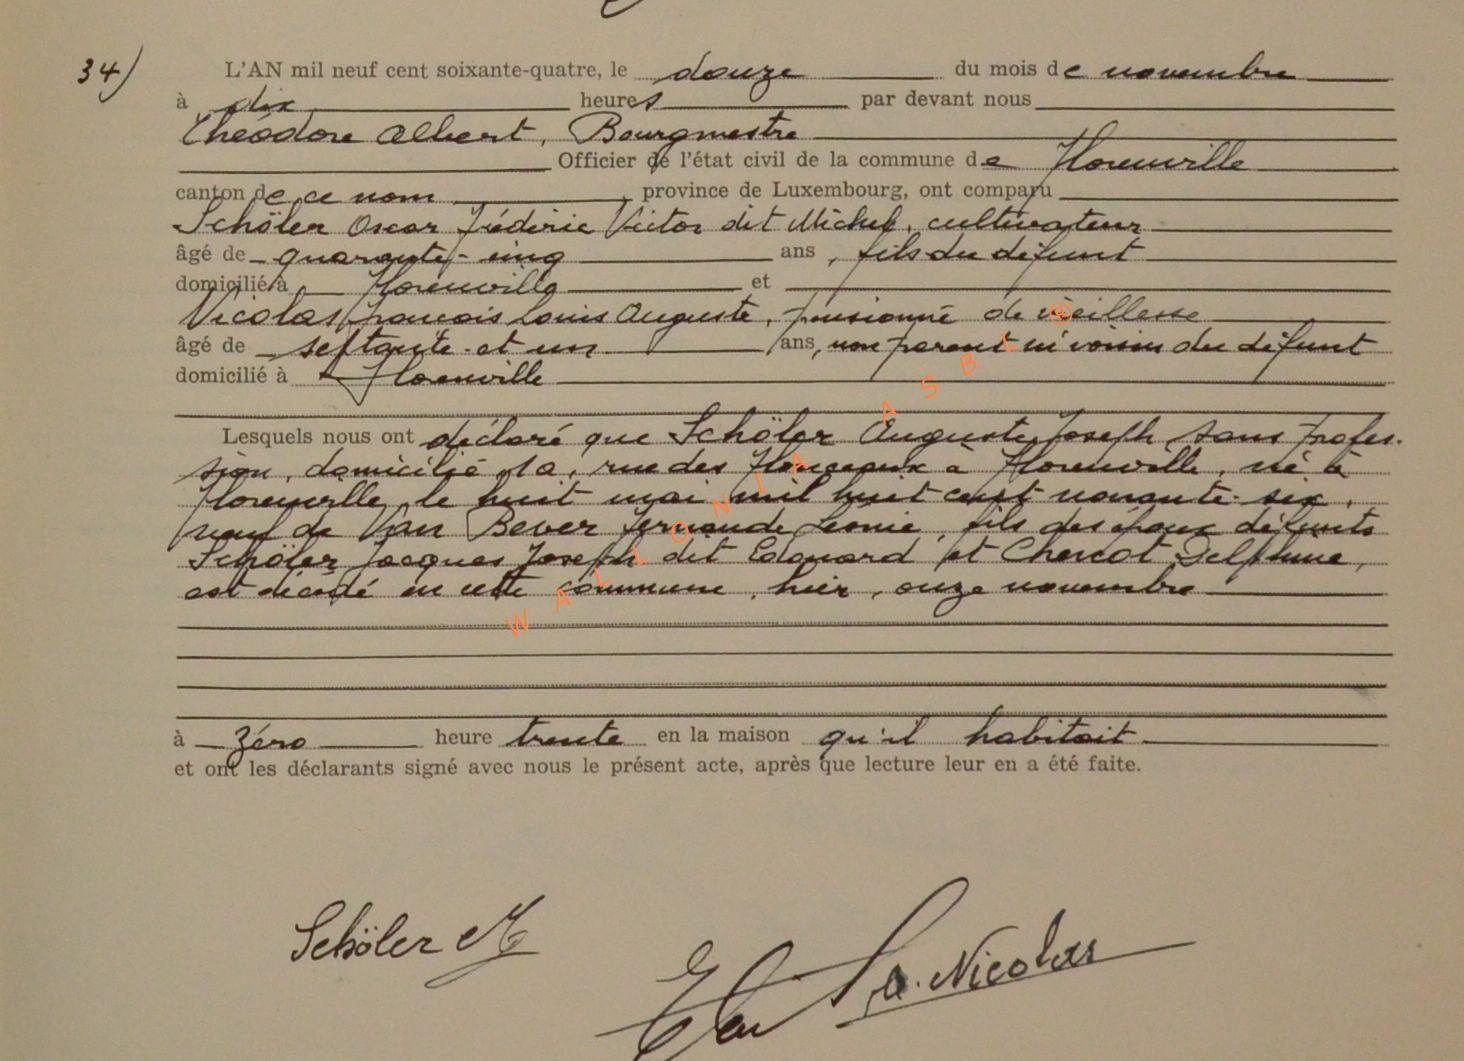 34) L'AN mil neuf cent soixante-quatre, le douze du mois de novembre
à dix heures par devant nous
Théodore Albert, Bourgmestre
Officier de l'état civil de la commune de Florenville
canton de ce nom province de Luxembourg, ont comparu
Schöler Oscar Frédéric Victor dit Michel, cultivateur
âgé de quarante-cinq ans, fils du défunt
domicilié à Florenville et
Nicolas François Louis Auguste, pensionné de vieillesse
âgé de septante et un ans, non parent ni voisin du défunt
domicilié à Florenville
Lesquels nous ont déclaré que Schöler Auguste Joseph, sans profes-
sion, domicilié rue des à Florenville, né à
Florenville, le huit mai mil huit cent nonante-six,
veuf de Van Bever Fernande Léonie, fils des époux défunts
Schöler Jacques Joseph dit Edouard et Delphine,
est décédé en cette commune, hier, onze novembre
à zéro heure trente en la maison qu'il habitait
et ont les déclarants signé avec nous le présent acte, après que lecture leur en a été faite.
Schöler M
a. Nicolas
WALLONIA ASBL ©